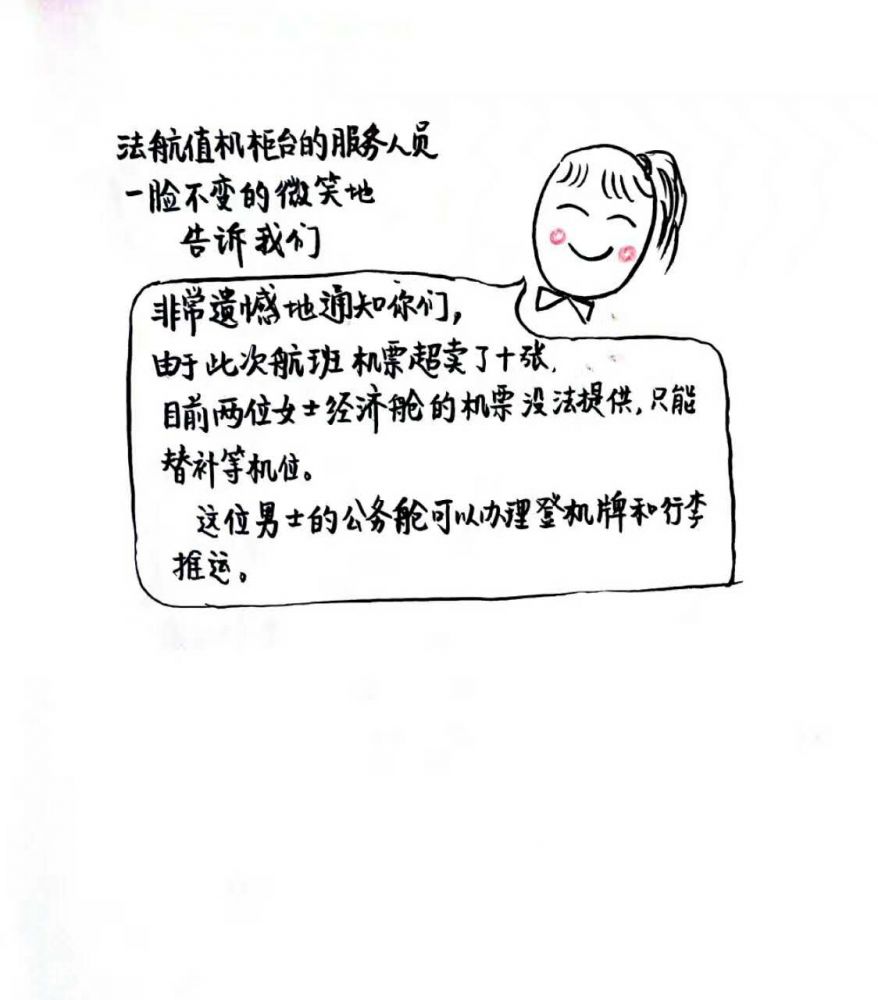 法航值机柜台的服务人员
一脸不变的微笑地
告诉我们
非常遗憾地通知你们，
由于此次航班机票超卖了十张，
目前两位女士经济舱的机票没法提供，只能
替补等机位。
这位男士的公务舱可以办理登机牌和行李
推运。